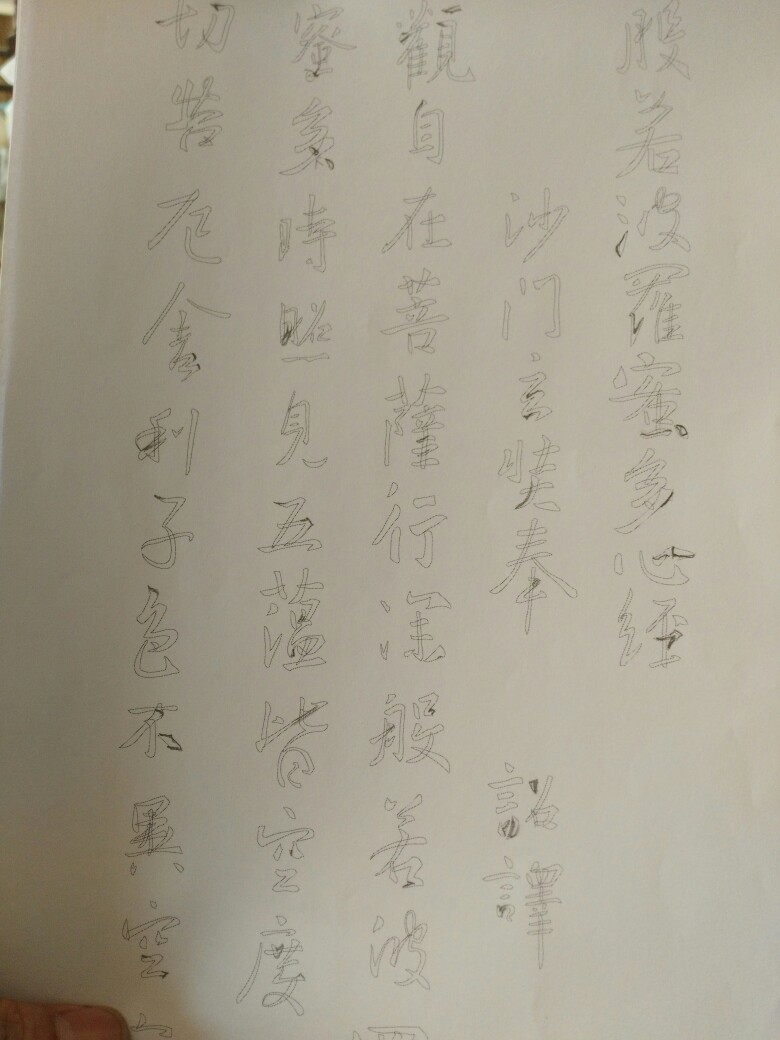 般若波羅蜜多心经
沙门玄奘奉 詔譯
觀自在菩薩行深般若波
蜜多時照見五蕴皆空度
切苦厄舍利子色不異空